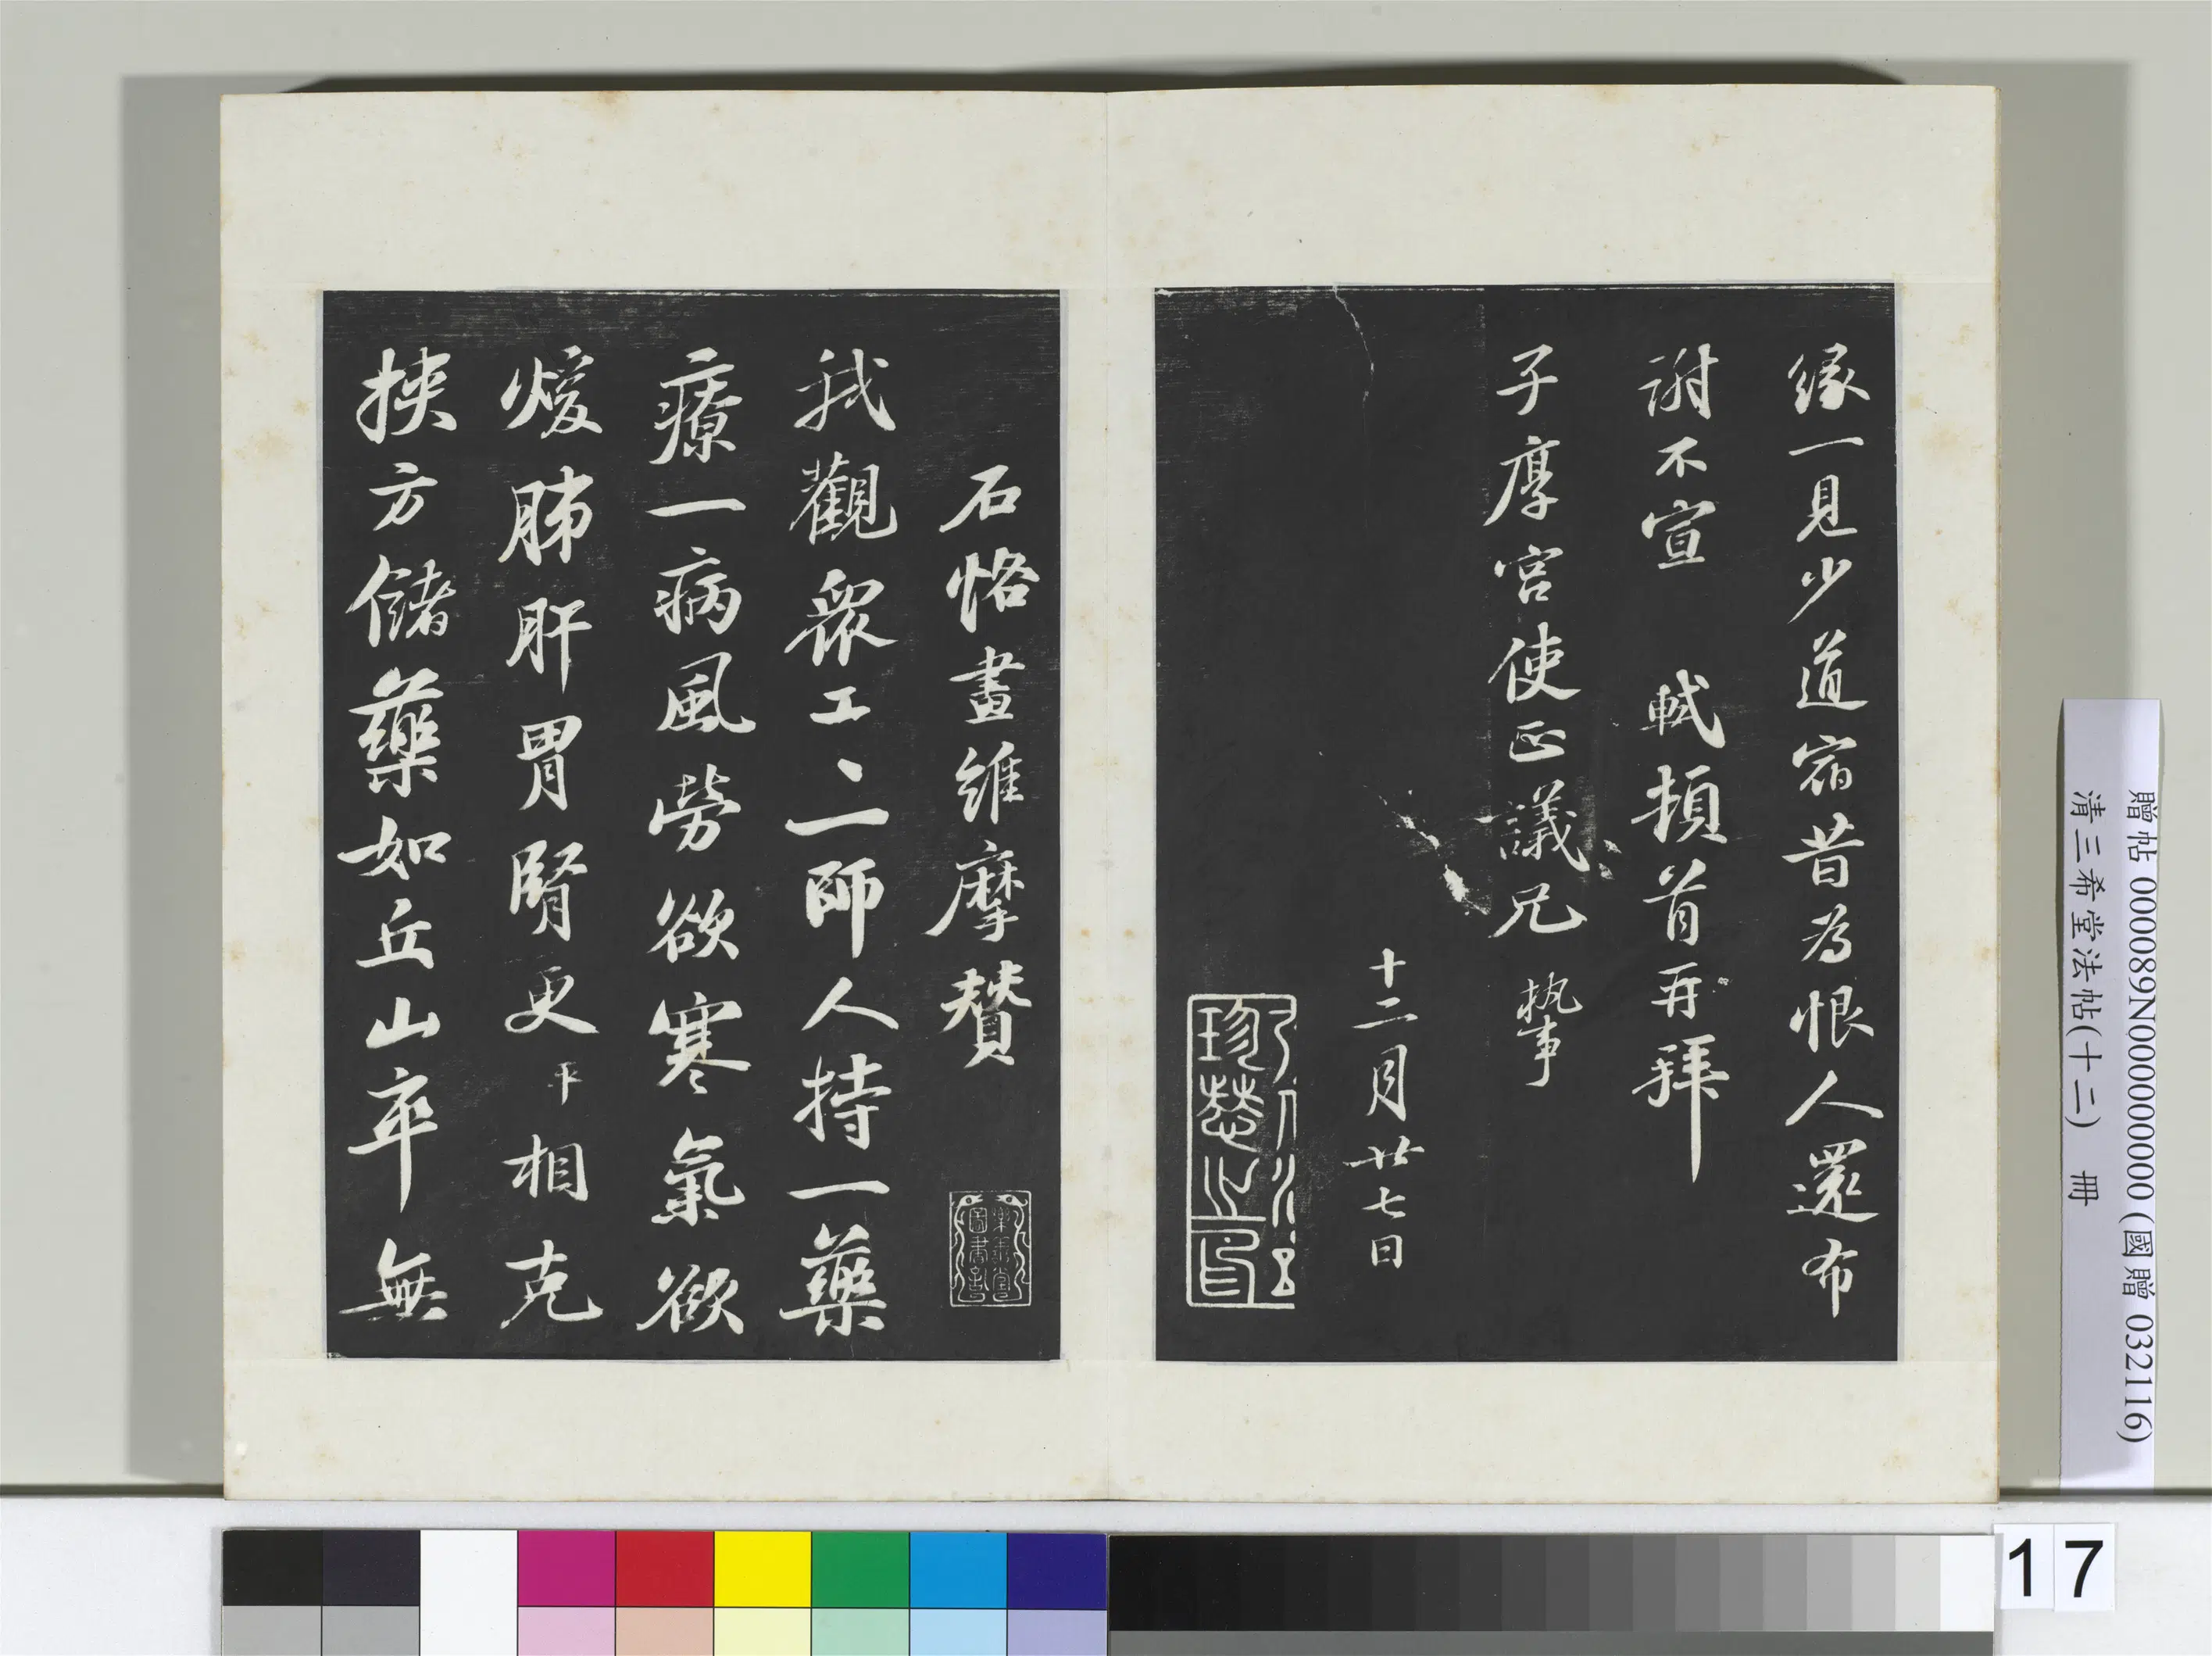 緣一見少道宿昔為恨人還布
謝不宣 軾頓首再拜
子厚宮使正議兄執事
十二月廿七日
石恪畫維摩贊
我觀衆工工一師人持一藥
療一病風勞欲寒氣欲
煖肺肝胃腎更平相克
挾方儲藥如丘山卒無
贈帖 000089N000000000 (國贈 032116)
清三希堂法帖(十二) 冊
17